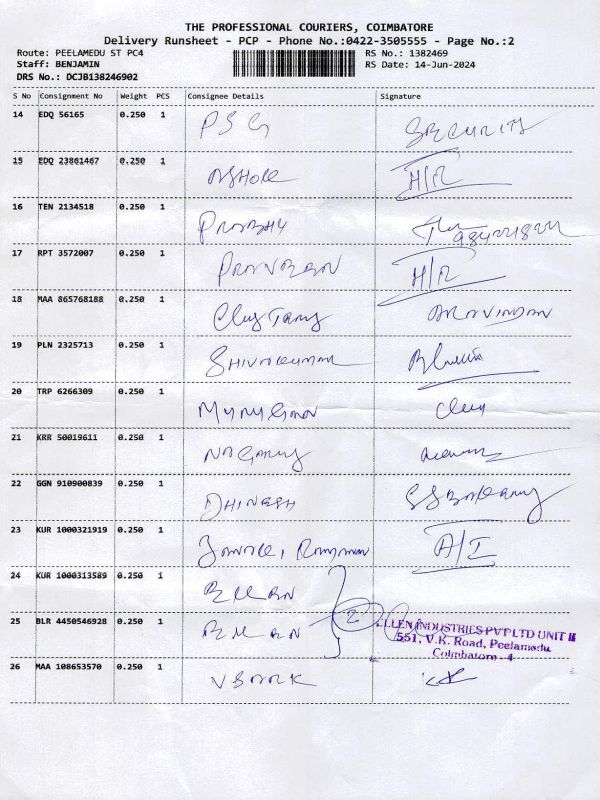 THE PROFESSIONAL COURIERS, COIMBATORE
Delivery Runsheet - PCP - Phone No.:0422-3505555 - Page No.:2
Route: PEELAMEDU ST PC4
RS No.: 1382469
Staff: BENJAMIN
RS Date: 14-Jun-2024
DRS No.: DCJB138246902
S No Consignment No Weight PCS Consignee Details Signature
14 EDQ 56165 0.250 1 PSG SECURITY
15 EDQ 23861467 0.250 1 ASHOK H/R
16 TEN 2134518 0.250 1 PRABHU
17 RPT 3572007 0.250 1 H/R
18 MAA 865768188 0.250 1 ARAVINDAN
19 PLN 2325713 0.250 1 SHIVAKUMAR
20 TRP 6266309 0.250 1
21 KRR 50019611 0.250 1
22 GGN 910900839 0.250 1 DHINESH
23 KUR 1000321919 0.250 1 A/I
24 KUR 1000313589 0.250 1
25 BLR 4450546928 0.250 1 2
ELLEN INDUSTRIES PVT LTD UNIT II
551, V.K. Road, Peelamedu
Coimbatore - 4
26 MAA 108653570 0.250 1